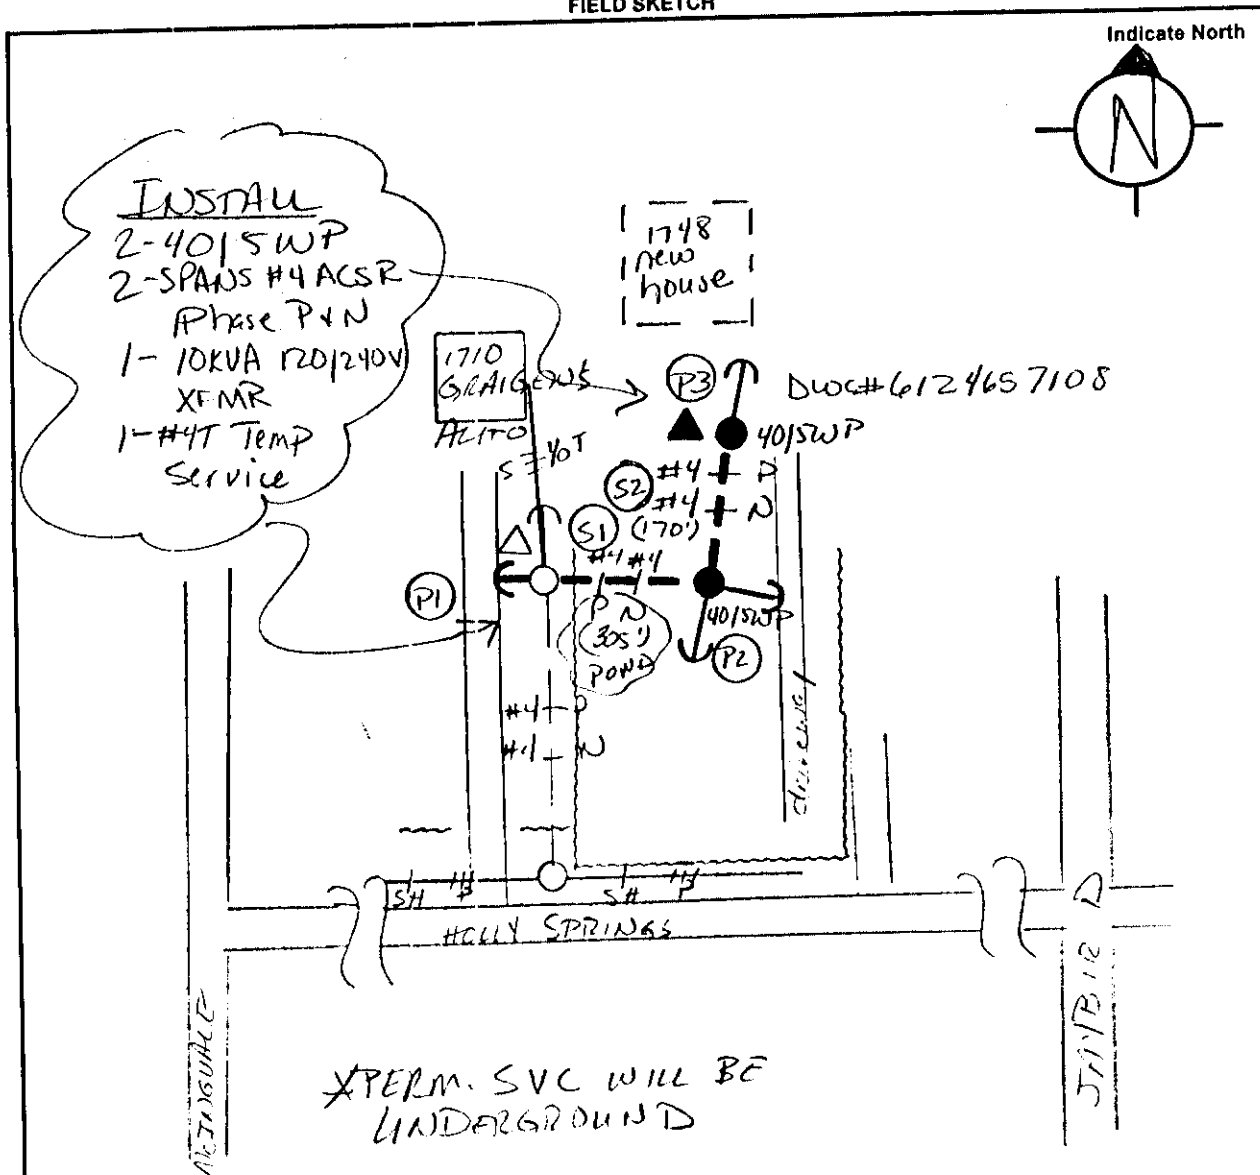 FIELD SKETCH
Indicate North
N
INSTALL
2-40/5WP
2-SPANS #4 ACSR
Phase P+N
1- 10KVA 120/240V
XFMR
1-#4T Temp
Service
1748
new
house
1710
AUTO
P3
DWG#6124657108
40/5WP
S
#4 P
S2
#4 N
(170')
S1
#4 #4
P1
P N
(305')
POND
40/5WP
P2
#4 P
#4 N
driveway
SH P
SH P
HOLLY SPRINGS
JAYBIRD
PERM. SVC WILL BE
UNDERGROUND